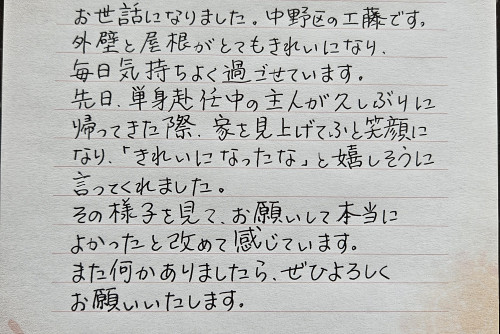 お世話になりました。中野区の工藤です。
外壁と屋根がとてもきれいになり、
毎日気持ちよく過ごせています。
先日、単身赴任中の主人が久しぶりに
帰ってきた際、家を見上げてふと笑顔に
なり、「きれいになったな」と嬉しそうに
言ってくれました。
その様子を見て、お願いして本当に
よかったと改めて感じています。
また何かありましたら、ぜひよろしく
お願いいたします。